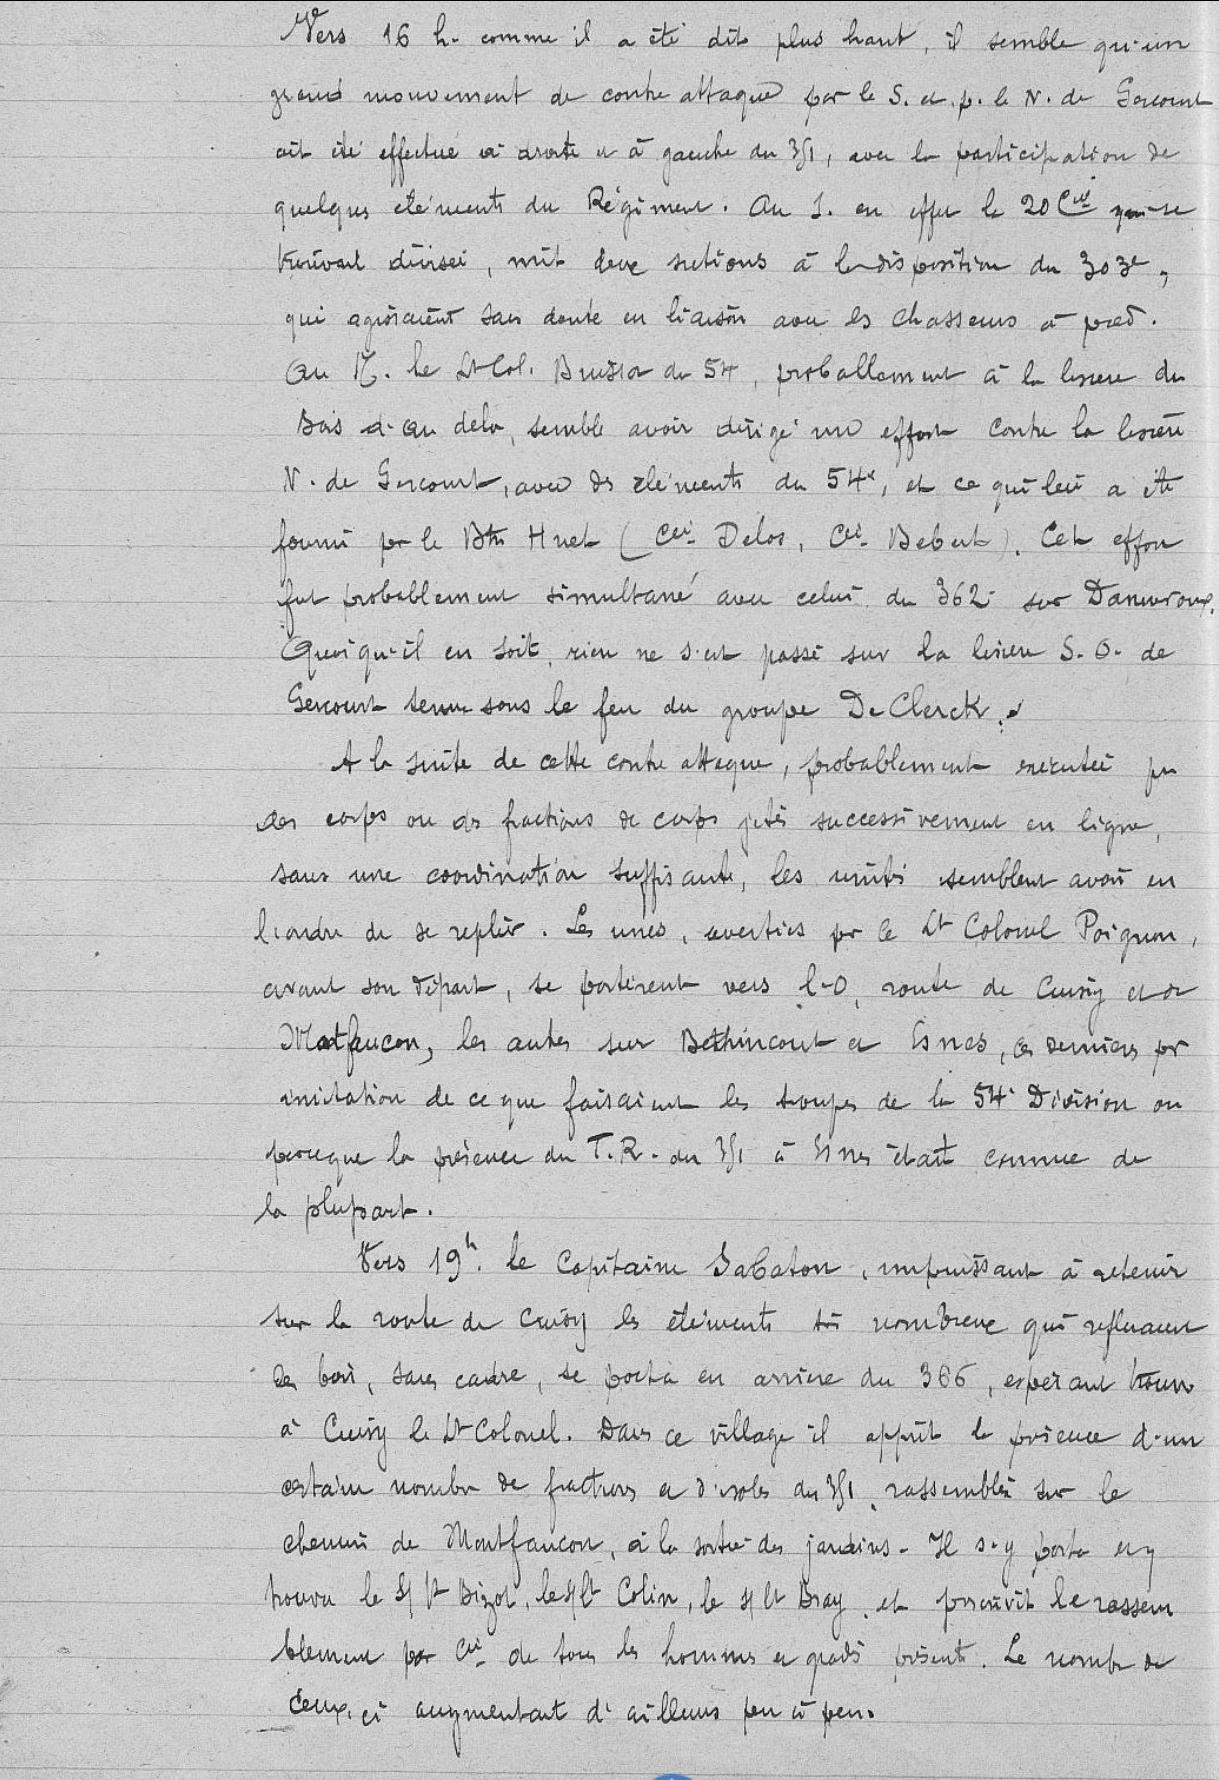 Vers 16 h. comme il a été dit plus haut, il semble qu'un
grand mouvement de contre attaque par le S. et p. le N. de Gercourt
ait été effectué à droite et à gauche du 351, avec la participation de
quelques éléments du Régiment. Au S. en effet la 20 Cie qui se
trouvait divisée, mit deux sections à la disposition du 303e,
qui agissaient sans doute en liaison avec les chasseurs à pied.
Au N. le Lt Col. Buisson du 54, probablement à la lisière du
Bois d'au delà, semble avoir dirigé un effort contre la lisière
N. de Gercourt, avec des éléments du 54e, et ce qui lui a été
fourni par le Bton Huet (Cie Delos, Cie Bebert). Cet effort
fut probablement simultané avec celui du 362 sur Dannevoux.
Quoiqu'il en soit, rien ne s'est passé sur la lisière S.O. de
Gercourt tenue sous le feu du groupe De Clerck.
A la suite de cette contre attaque, probablement exécutée par
des corps ou des fractions de corps jetés successivement en ligne,
sans une coordination suffisante, les unités semblent avoir eu
l'ordre de se replier. Les unes, averties par le Lt Colonel Poignon,
avant son départ, se portèrent vers l'O, route de Cuisy et de
Montfaucon, les autres sur Béthincourt et Esnes, ces derniers par
imitation de ce que faisaient les troupes de la 54e Division ou
parceque la présence du T.R. du 351 à Esnes était connue de
la plupart.
Vers 19h. le Capitaine Sabaton, impuissant à retenir
sur la route de Cuisy les éléments très nombreux qui refluaient
des bois, sans cadre, se porta en arrière du 366, espérant trouver
à Cuisy le Lt Colonel. Dans ce village il apprit la présence d'un
certain nombre de fractions et d'isolés du 351 rassemblés sur le
chemin de Montfaucon, à la sortie des jardins. Il s'y porta et y
trouva le S/Lt Bizot, le s/Lt Colin, le s/Lt Bray, et prescrivit le rassem
blement par Cie de tous les hommes et gradés présents. Le nombre de
ceux-ci augmentait d'ailleurs peu à peu.